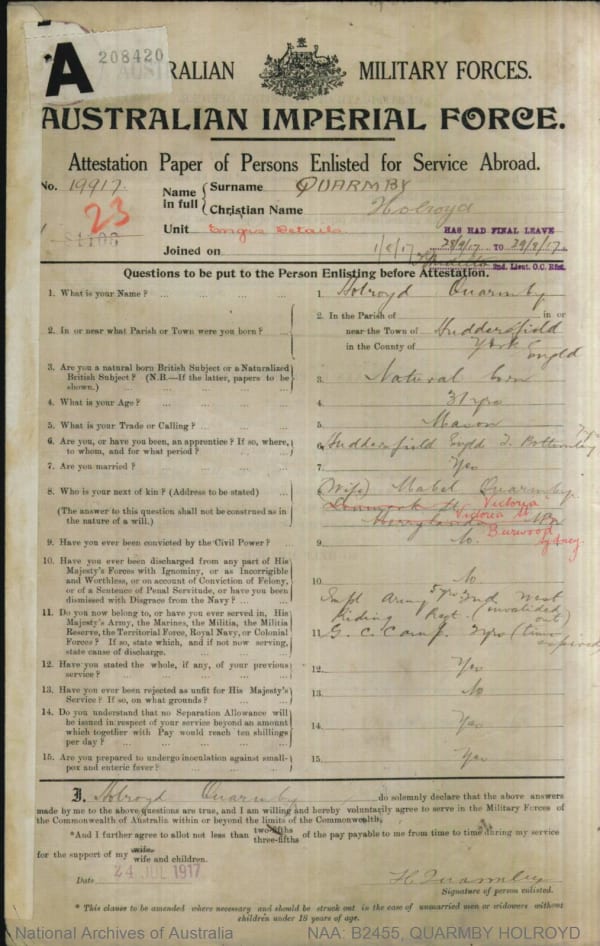 A
208420
AUSTRALIAN MILITARY FORCES.
AUSTRALIAN IMPERIAL FORCE.
Attestation Paper of Persons Enlisted for Service Abroad.
No. 19917
Name in full { Surname QUARMBY
Christian Name Holroyd
23
Unit Engrs Details
HAS HAD FINAL LEAVE
Joined on 1/8/17
TO 29/8/17
2nd. Lieut. O.C.
Questions to be put to the Person Enlisting before Attestation.
1. What is your Name? ... 1. Holroyd Quarmby
2. In or near what Parish or Town were you born? ... 2. In the Parish of in or
near the Town of Huddersfield
in the County of York Engld
3. Are you a natural born British Subject or a Naturalized
British Subject? (N.B.—If the latter, papers to be
shown.) ... 3. Natural born
4. What is your Age? ... 4. 31 yrs
5. What is your Trade or Calling? ... 5. Mason
6. Are you, or have you been, an apprentice? If so, where,
to whom, and for what period? ... 6. Huddersfield Engld
7. Are you married? ... 7. Yes
8. Who is your next of kin? (Address to be stated) ... (Wife) Mabel Quarmby
8. Victoria
(The answer to this question shall not be construed as in
the nature of a will.) Victoria St
Burwood
Sydney
9. Have you ever been convicted by the Civil Power? 9. No
10. Have you ever been discharged from any part of His
Majesty's Forces with Ignominy, or as Incorrigible
and Worthless, or on account of Conviction of Felony,
or of a Sentence of Penal Servitude, or have you been
dismissed with Disgrace from the Navy? ... 10. No
11. Do you now belong to, or have you ever served in, His
Majesty's Army, the Marines, the Militia, the Militia
Reserve, the Territorial Force, Royal Navy, or Colonial
Forces? If so, state which, and if not now serving,
state cause of discharge. ... Impl Army 5 yrs 2nd West
Riding Regt. (invalided out)
11. G. C. Camp. 2 yrs (time expired)
12. Have you stated the whole, if any, of your previous
service? ... 12. Yes
13. Have you ever been rejected as unfit for His Majesty's
Service? If so, on what grounds? 13. No
14. Do you understand that no Separation Allowance will
be issued in respect of your service beyond an amount
which together with Pay would reach ten shillings
per day? ... 14. Yes
15. Are you prepared to undergo inoculation against small-
pox and enteric fever? ... 15. Yes
I, Holroyd Quarmby do solemnly declare that the above answers
made by me to the above questions are true, and I am willing and hereby voluntarily agree to serve in the Military Forces of
the Commonwealth of Australia within or beyond the limits of the Commonwealth.
*And I further agree to allot not less than two-fifths three-fifths of the pay payable to me from time to time during my service
for the support of my wife. wife and children.
Date 24 JUL 1917
H Quarmby
Signature of person enlisted.
* This clause to be amended where necessary and should be struck out in the case of unmarried men or widowers without
children under 18 years of age.
National Archives of Australia
NAA: B2455, QUARMBY HOLROYD